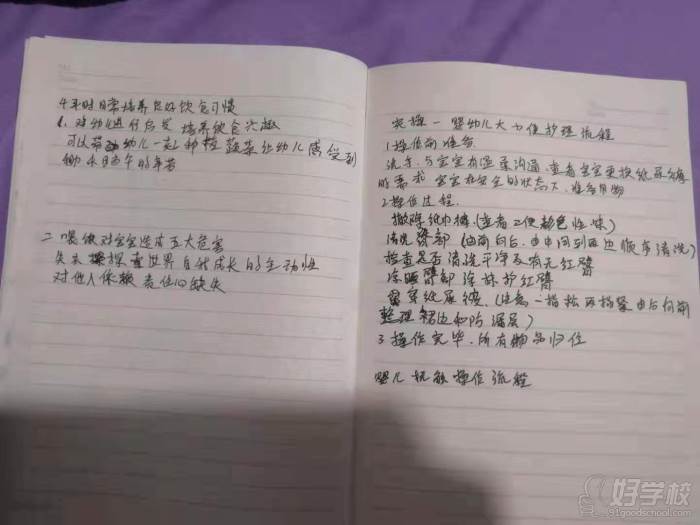 4.平时日常培养良好饮食习惯
1. 对幼儿进行启发 培养饮食兴趣
可以带动幼儿一起种植蔬菜让幼儿感受到
劳动的辛苦
二 喂饭对宝宝造成五大危害
失去探索世界自我成长的主动性
对他人依赖 责任心缺失
实操一 婴幼儿大小便护理流程
1操作前准备
洗手,与宝宝有温柔沟通,查看宝宝更换纸尿裤
的需求 宝宝在安全的状态下,准备用物
2操作过程.
撤除纸尿裤(查看二便颜色性味)
清洗臀部(由前向后,由中间到两边顺序清洗)
检查是否清洗干净及有无红臀
涂 臀部 涂抹护红臀
穿纸尿裤,(注意一指松两指紧 由后向前
整理裙边和防漏层)
3操作完毕,所有物品归位
婴儿抚触操作流程
好学校
91goodschool.com